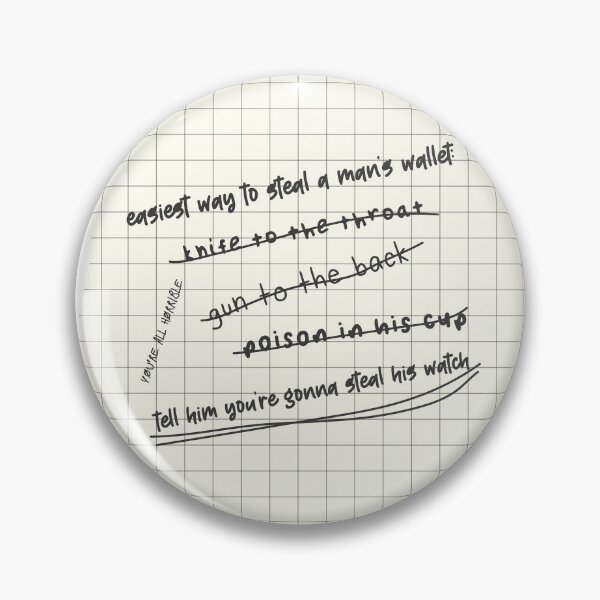 easiest way to steal a man's wallet:
knife to the throat
gun to the back
poison in his cup
YOU'RE ALL HORRIBLE
tell him you're gonna steal his watch